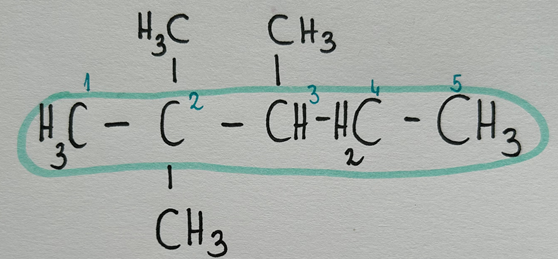 H₃C CH₃
1 2 3 4 5
H₃C – C – CH – H₂C – CH₃
CH₃